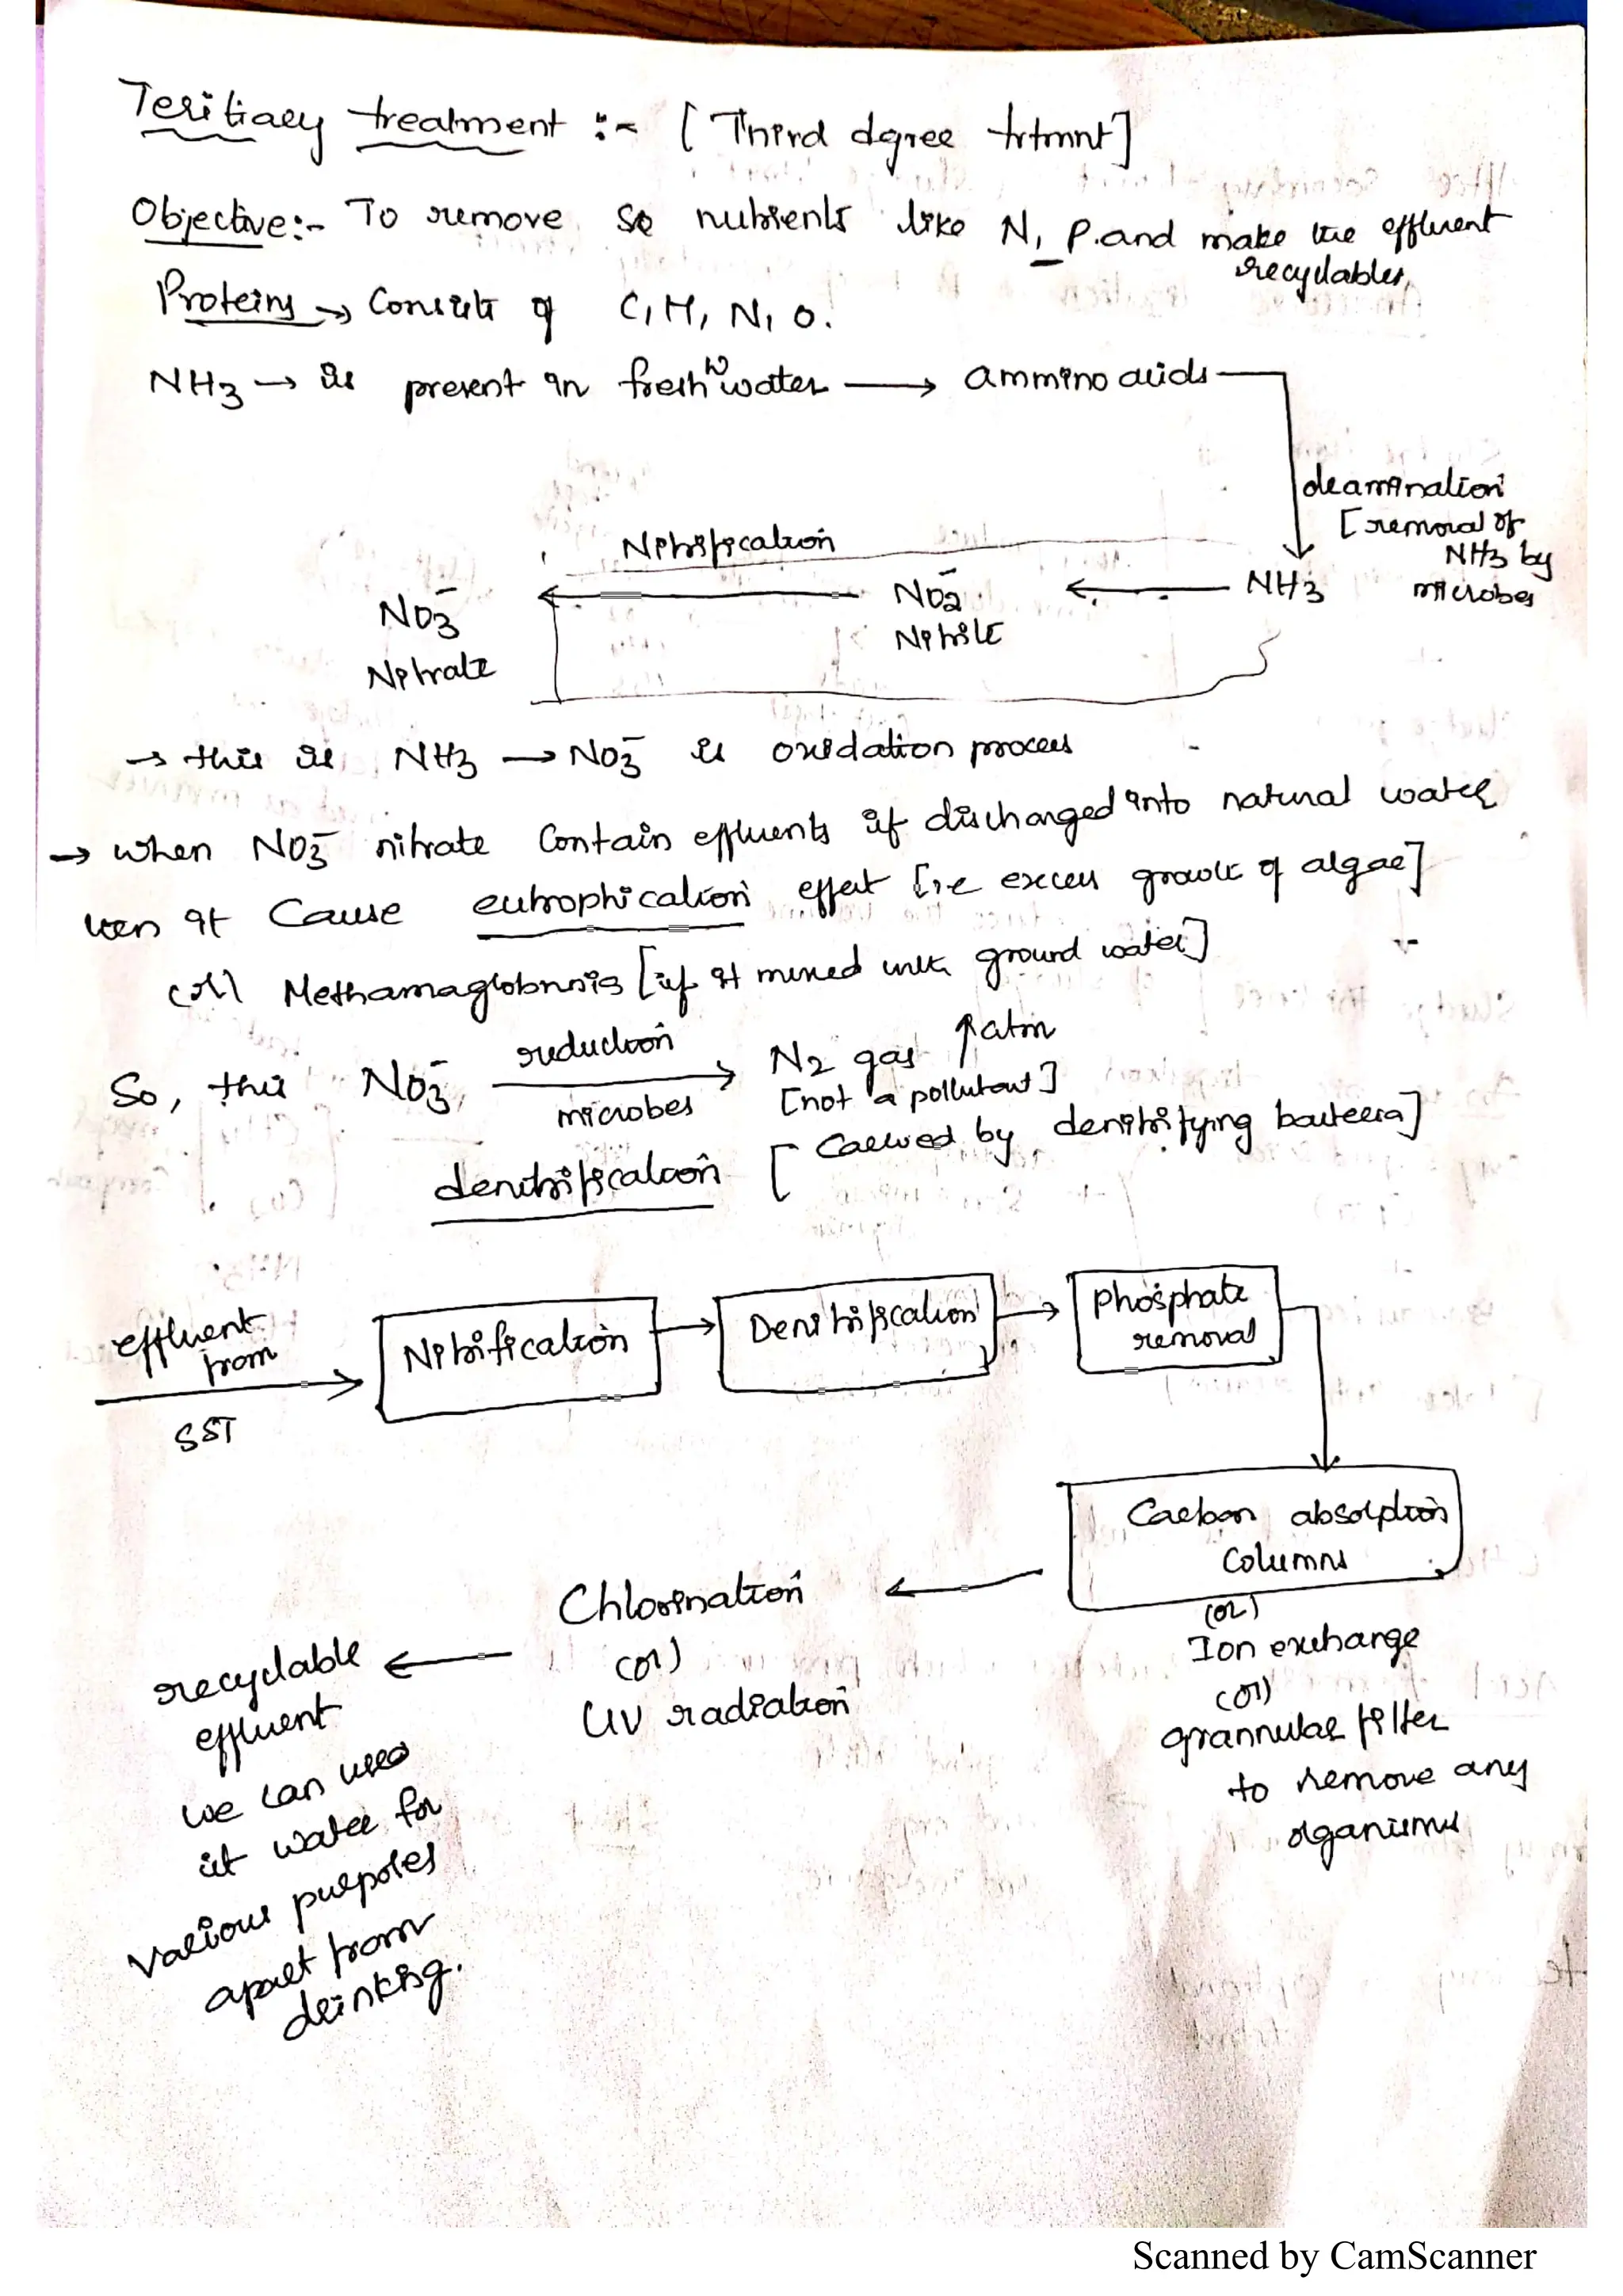 Teritiary treatment :- [Third dgree trtmnt]
Objective:- To remove so nutrients like N, P. and make the effluent
recyclables,
Proteins → Consists of C, H, N, O.
NH3 → is present in fresh w water → ammino acids
deamination
[removal of
NH3 by
microbes
Nitrification
NO3- ← NO2- ← NH3
Nitrate
Nitrite
→ this is NH3 → NO3- is oxidation process
→ when NO3- nitrate contain effluents if discharged into natural water
then it cause eutrophication effect [i.e excess growth of algae]
(or) Methamaglobnnis [if it mixed with ground water]
So, this NO3- reduction → N2 gas ↑atm
microbes
[not a pollutant]
denitrification [caused by denitrifying bacteria]
effluent from → SST
Nitrification → Denitrification → Phosphate removal
Carbon absorption
columns
(or)
Ion exchange
(or)
grannular filter
to remove any
organisms
Chlorination
(or)
UV radiation
recyclable
effluent
we can use
it water for
various purposes
apart from
drinking.
Scanned by CamScanner